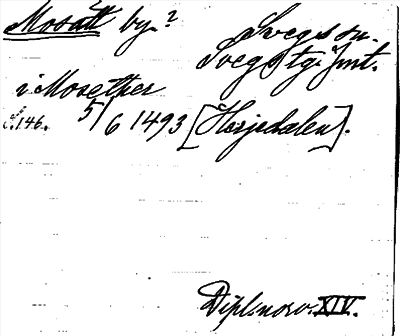 Mosätt by? Svegs sn.
Svegs tg. Jmt.
i Mosether
s. 146. 5/6 1493 [Herjedalen].
Dipl. norv. XIV.